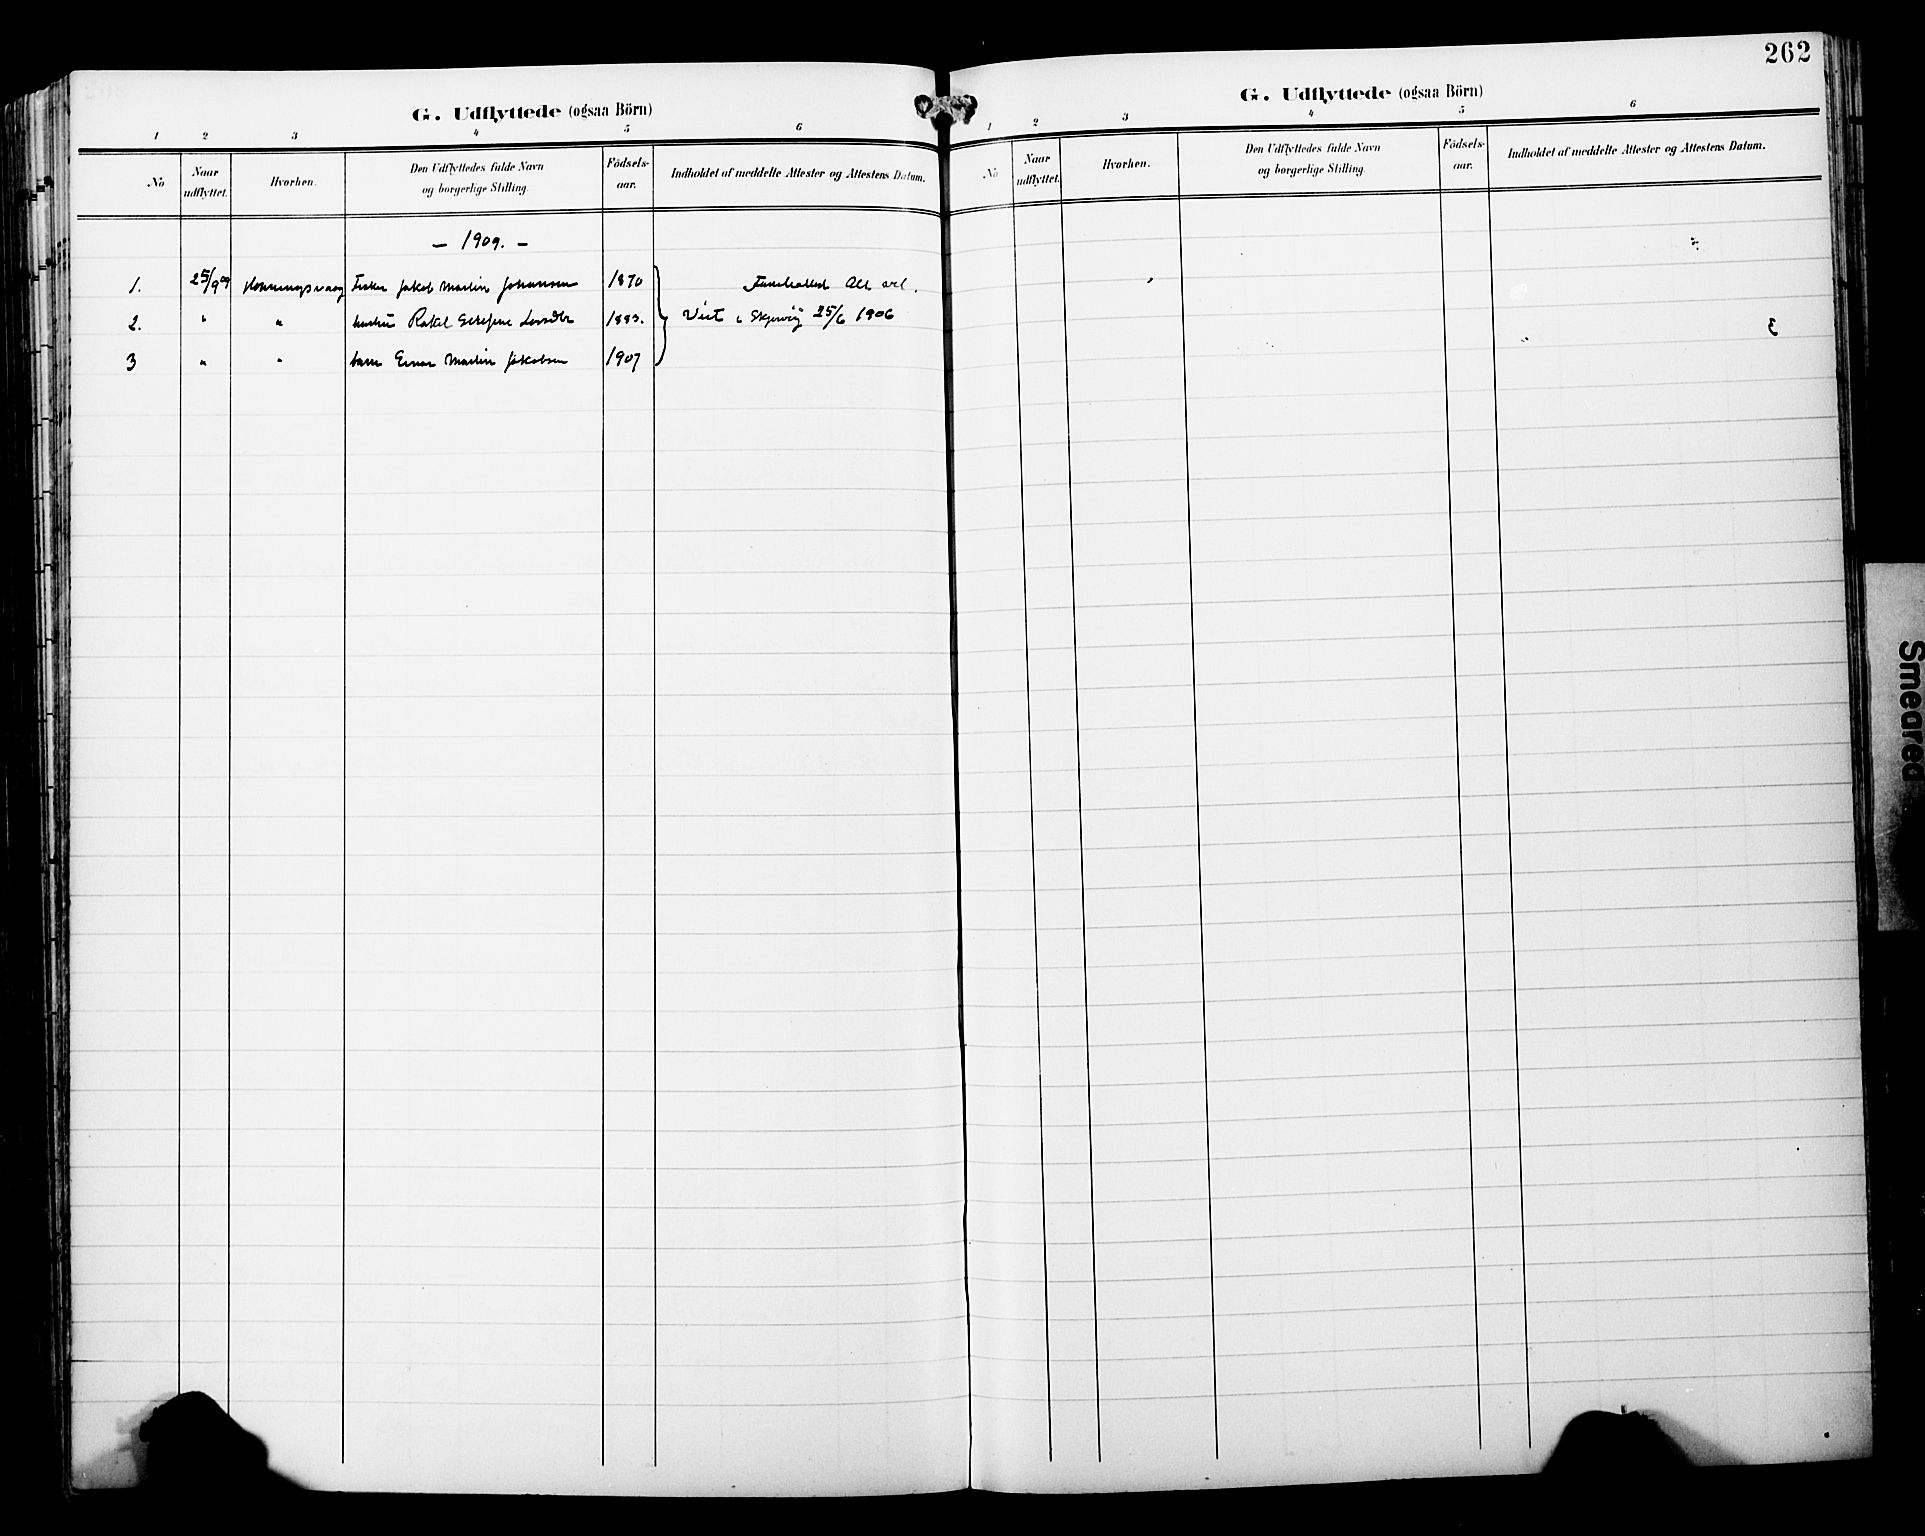 262
G. Udflyttede (ogsaa Börn)
1 2 3 4 5 6
No Naar udflyttet. Hvorhen. Den Udflyttedes fulde Navn og borgerlige Stilling. Födsels-aar. Indholdet af meddelte Attester og Attestens Datum.
— 1909. —
1. 25/9 09 Honningsvaag Fisker Jakob Martin Johansen 1870
2. " " hustru Rakel 1883. Viet i Skjervöy 25/6 1906
3 " " barn Einar Martin Jakobsen 1907
G. Udflyttede (ogsaa Börn)
1 2 3 4 5 6
No Naar udflyttet. Hvorhen. Den Udflyttedes fulde Navn og borgerlige Stilling. Födsels-aar. Indholdet af meddelte Attester og Attestens Datum.
Smeared